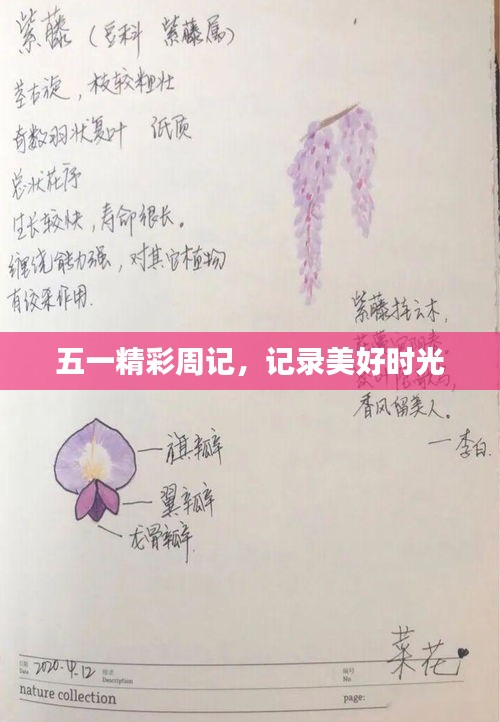 紫藤（豆科 紫藤属）
茎右旋，枝较粗壮
奇数羽状复叶 低顶
总状花序
生长较快，寿命很长。
缠绕能力强，对其它植物
有绞杀作用.
紫藤挂云木，
五一精彩周记，记录美好时光
香风留美人。
—李白.
旗瓣
翼瓣
龙骨瓣
菜花
日期 Date 2020.4.12 Description
编号 No
nature collection
page: